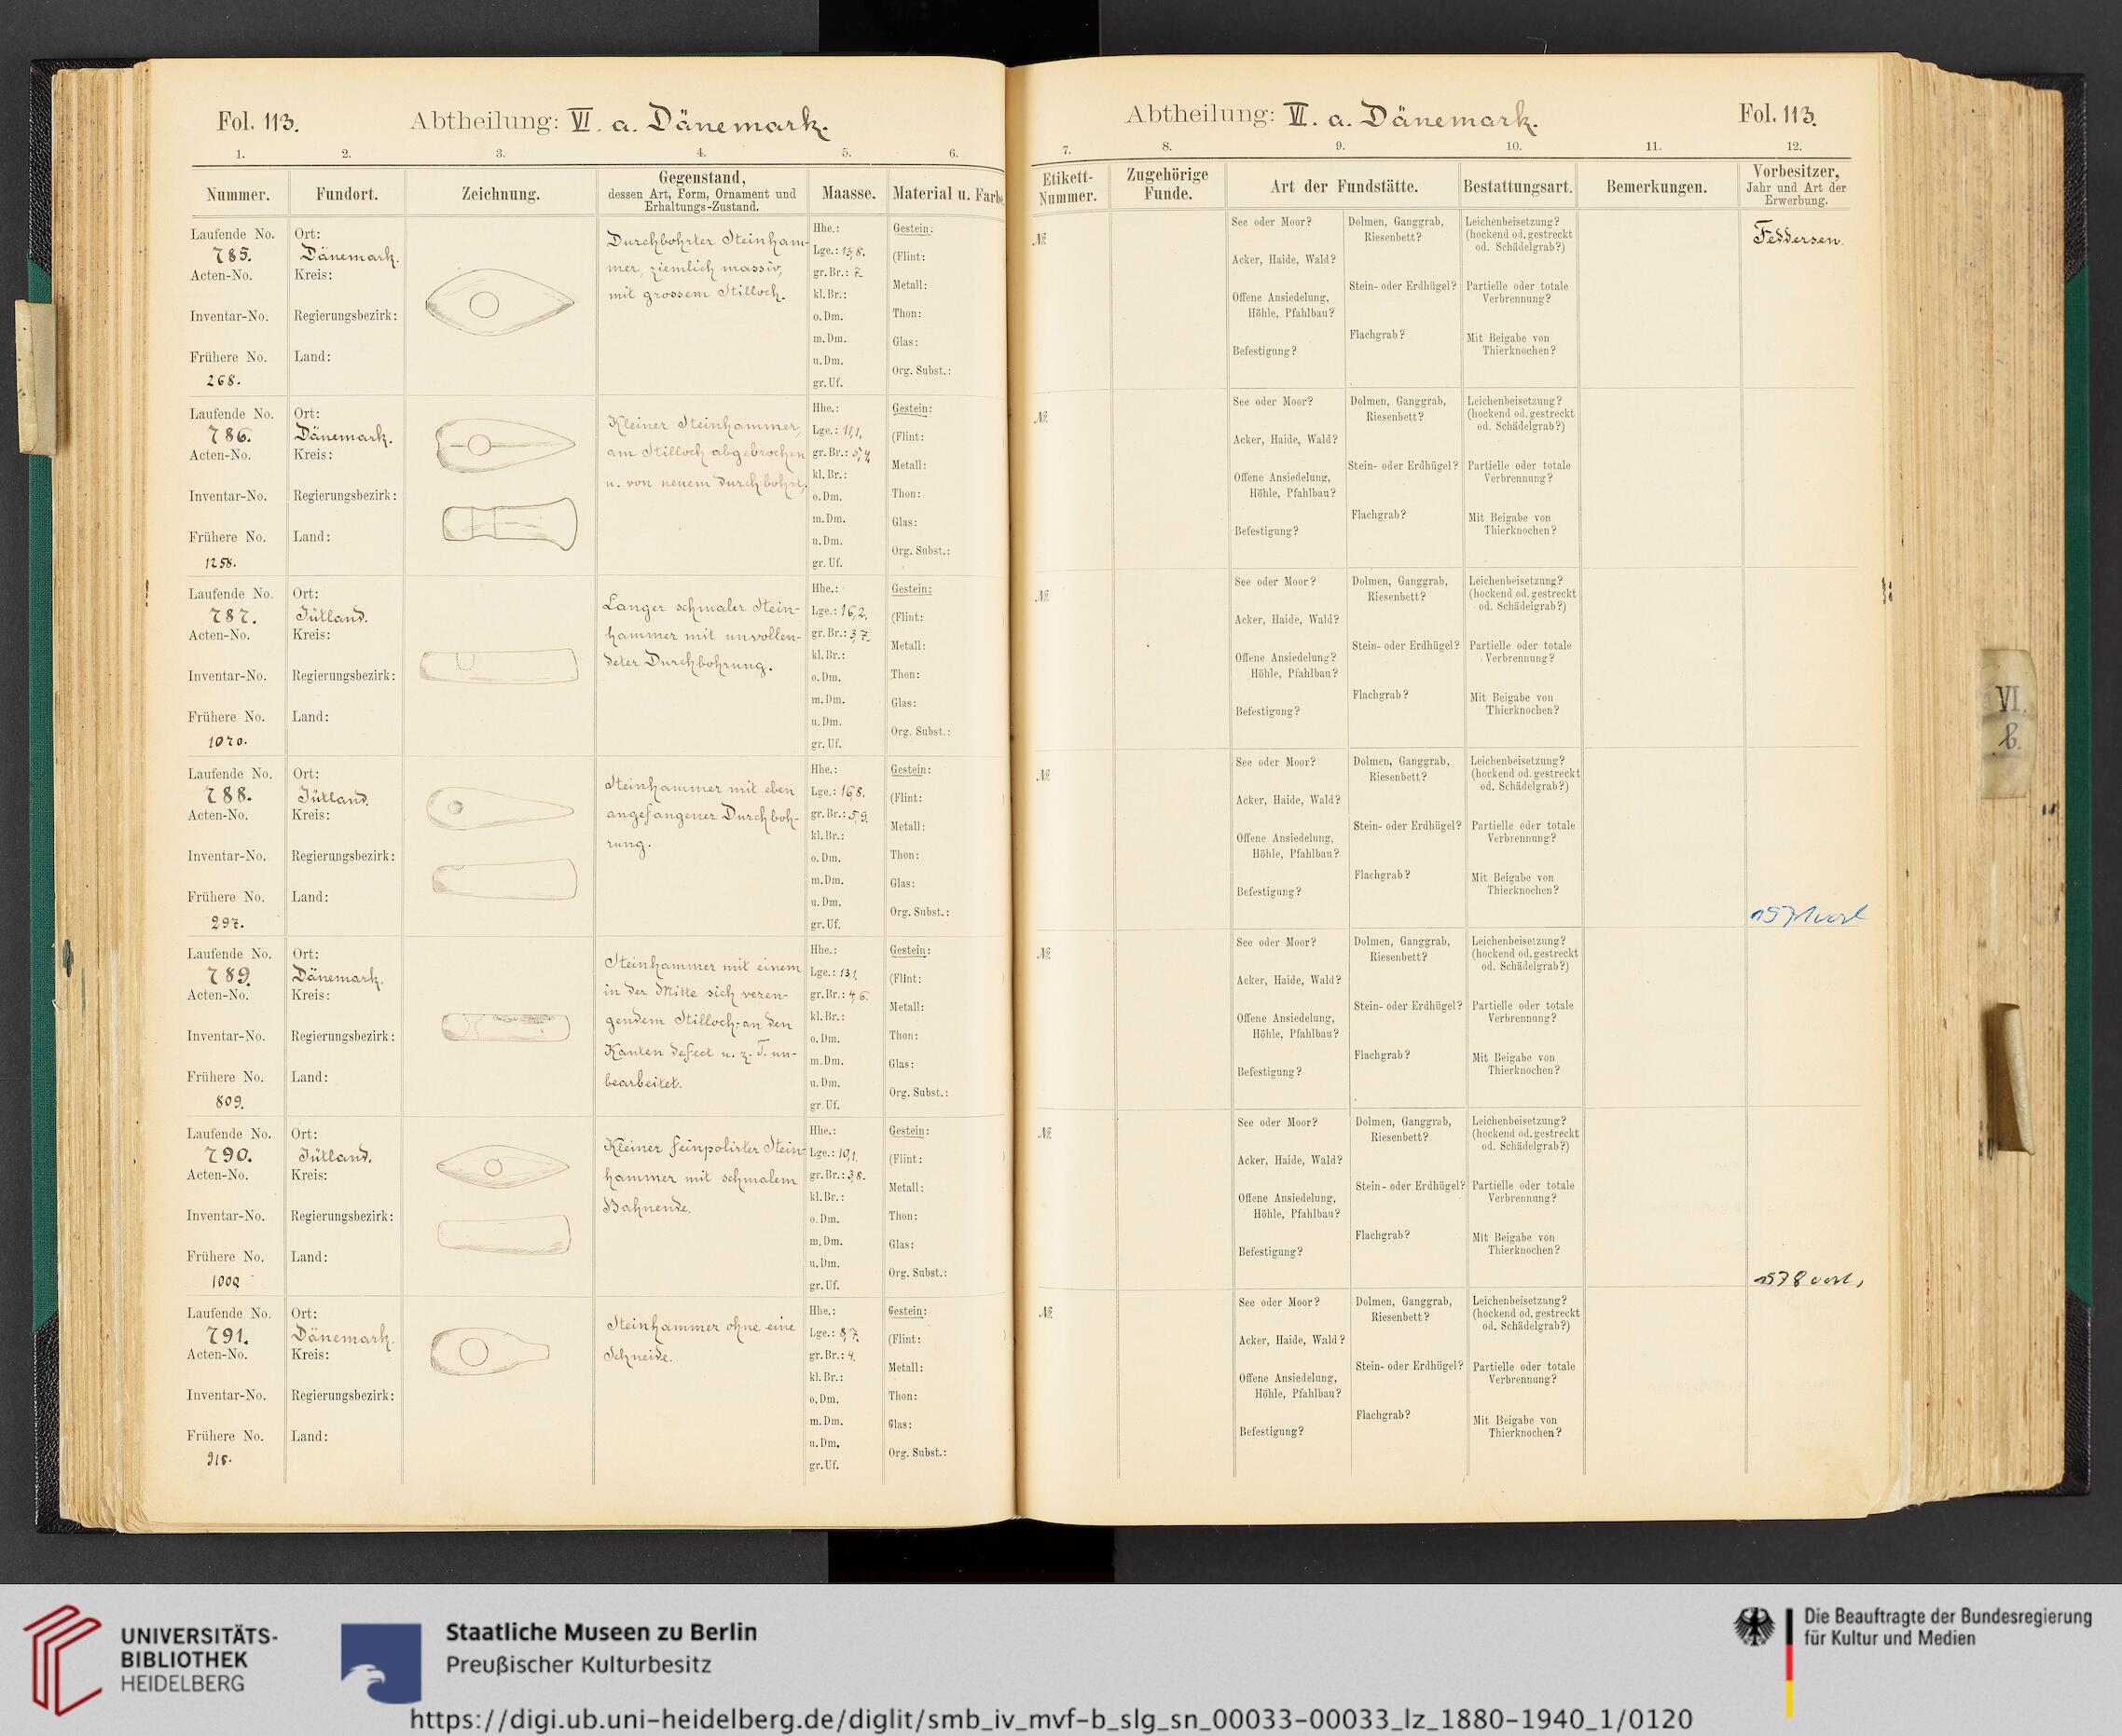 Fol. 113.
Abtheilung: VI. a. Dänemark.
1. 2. 3. 4. 5. 6.
Nummer.
Fundort.
Zeichnung.
Gegenstand,
dessen Art, Form, Ornament und
Erhaltungs-Zustand.
Maasse.
Material u. Farbe
Laufende No.
785.
Acten-No.
Inventar-No.
Frühere No.
268.
Ort:
Dänemark.
Kreis:
Regierungsbezirk:
Land:
Durchbohrter Steinham-
mer, ziemlich massiv,
mit grossem Stilloch.
Hhe.:
Lge.: 13,8.
gr. Br.: 7.
kl. Br.:
o. Dm.
m. Dm.
u. Dm.
gr. Uf.
Gestein:
(Flint:
Metall:
Thon:
Glas:
Org. Subst.:
Laufende No.
786.
Acten-No.
Inventar-No.
Frühere No.
1258.
Ort:
Dänemark.
Kreis:
Regierungsbezirk:
Land:
Kleiner Steinhammer,
am Stilloch abgebrochen
u. von neuem durchbohrt.
Hhe.:
Lge.: 11,1.
gr. Br.: 5,4.
kl. Br.:
o. Dm.
m. Dm.
u. Dm.
gr. Uf.
Gestein:
(Flint:
Metall:
Thon:
Glas:
Org. Subst.:
Laufende No.
787.
Acten-No.
Inventar-No.
Frühere No.
1070.
Ort:
Jütland.
Kreis:
Regierungsbezirk:
Land:
Langer schmaler Stein-
hammer mit unvollen-
deter Durchbohrung.
Hhe.:
Lge.: 16,2.
gr. Br.: 3,7.
kl. Br.:
o. Dm.
m. Dm.
u. Dm.
gr. Uf.
Gestein:
(Flint:
Metall:
Thon:
Glas:
Org. Subst.:
Laufende No.
788.
Acten-No.
Inventar-No.
Frühere No.
297.
Ort:
Jütland.
Kreis:
Regierungsbezirk:
Land:
Steinhammer mit eben
angefangener Durchboh-
rung.
Hhe.:
Lge.: 16,8.
gr. Br.: 5,9.
kl. Br.:
o. Dm.
m. Dm.
u. Dm.
gr. Uf.
Gestein:
(Flint:
Metall:
Thon:
Glas:
Org. Subst.:
Laufende No.
789.
Acten-No.
Inventar-No.
Frühere No.
809.
Ort:
Dänemark.
Kreis:
Regierungsbezirk:
Land:
Steinhammer mit einem
in der Mitte sich veren-
gendem Stilloch; an den
Kanten defect u. z. T. un-
bearbeitet.
Hhe.:
Lge.: 13,1.
gr. Br.: 4,6.
kl. Br.:
o. Dm.
m. Dm.
u. Dm.
gr. Uf.
Gestein:
(Flint:
Metall:
Thon:
Glas:
Org. Subst.:
Laufende No.
790.
Acten-No.
Inventar-No.
Frühere No.
Ort:
Jütland.
Kreis:
Regierungsbezirk:
Land:
Kleiner feinpolirter Stein-
hammer mit schmalem
Bahnende.
Hhe.:
Lge.: 10,1.
gr. Br.: 3,8.
kl. Br.:
o. Dm.
m. Dm.
u. Dm.
gr. Uf.
Gestein:
(Flint:
Metall:
Thon:
Glas:
Org. Subst.:
Laufende No.
791.
Acten-No.
Inventar-No.
Frühere No.
Ort:
Dänemark.
Kreis:
Regierungsbezirk:
Land:
Steinhammer ohne eine
Schneide.
Hhe.:
Lge.: 8,7.
gr. Br.: 4.
kl. Br.:
o. Dm.
m. Dm.
u. Dm.
gr. Uf.
Gestein:
(Flint:
Metall:
Thon:
Glas:
Org. Subst.:
Abtheilung: VI. a. Dänemark.
Fol. 113.
7. 8. 9. 10. 11. 12.
Etikett-
Nummer.
Zugehörige
Funde.
Art der Fundstätte.
Bestattungsart.
Bemerkungen.
Vorbesitzer,
Jahr und Art der
Erwerbung.
№
See oder Moor?
Acker, Haide, Wald?
Offene Ansiedelung,
Höhle, Pfahlbau?
Befestigung?
Dolmen, Ganggrab,
Riesenbett?
Stein- oder Erdhügel?
Flachgrab?
Leichenbeisetzung?
(hockend od. gestreckt
od. Schädelgrab?)
Partielle oder totale
Verbrennung?
Mit Beigabe von
Thierknochen?
Feddersen.
№
See oder Moor?
Acker, Haide, Wald?
Offene Ansiedelung,
Höhle, Pfahlbau?
Befestigung?
Dolmen, Ganggrab,
Riesenbett?
Stein- oder Erdhügel?
Flachgrab?
Leichenbeisetzung?
(hockend od. gestreckt
od. Schädelgrab?)
Partielle oder totale
Verbrennung?
Mit Beigabe von
Thierknochen?
№
See oder Moor?
Acker, Haide, Wald?
Offene Ansiedelung?
Höhle, Pfahlbau?
Befestigung?
Dolmen, Ganggrab,
Riesenbett?
Stein- oder Erdhügel?
Flachgrab?
Leichenbeisetzung?
(hockend od. gestreckt
od. Schädelgrab?)
Partielle oder totale
Verbrennung?
Mit Beigabe von
Thierknochen?
№
See oder Moor?
Acker, Haide, Wald?
Offene Ansiedelung,
Höhle, Pfahlbau?
Befestigung?
Dolmen, Ganggrab,
Riesenbett?
Stein- oder Erdhügel?
Flachgrab?
Leichenbeisetzung?
(hockend od. gestreckt
od. Schädelgrab?)
Partielle oder totale
Verbrennung?
Mit Beigabe von
Thierknochen?
№
See oder Moor?
Acker, Haide, Wald?
Offene Ansiedelung,
Höhle, Pfahlbau?
Befestigung?
Dolmen, Ganggrab,
Riesenbett?
Stein- oder Erdhügel?
Flachgrab?
Leichenbeisetzung?
(hockend od. gestreckt
od. Schädelgrab?)
Partielle oder totale
Verbrennung?
Mit Beigabe von
Thierknochen?
№
See oder Moor?
Acker, Haide, Wald?
Offene Ansiedelung,
Höhle, Pfahlbau?
Befestigung?
Dolmen, Ganggrab,
Riesenbett?
Stein- oder Erdhügel?
Flachgrab?
Leichenbeisetzung?
(hockend od. gestreckt
od. Schädelgrab?)
Partielle oder totale
Verbrennung?
Mit Beigabe von
Thierknochen?
№
See oder Moor?
Acker, Haide, Wald?
Offene Ansiedelung,
Höhle, Pfahlbau?
Befestigung?
Dolmen, Ganggrab,
Riesenbett?
Stein- oder Erdhügel?
Flachgrab?
Leichenbeisetzung?
(hockend od. gestreckt
od. Schädelgrab?)
Partielle oder totale
Verbrennung?
Mit Beigabe von
Thierknochen?
VI.
b.
UNIVERSITÄTS-
BIBLIOTHEK
HEIDELBERG
Staatliche Museen zu Berlin
Preußischer Kulturbesitz
Die Beauftragte der Bundesregierung
für Kultur und Medien
https://digi.ub.uni-heidelberg.de/diglit/smb_iv_mvf-b_slg_sn_00033-00033_lz_1880-1940_1/0120